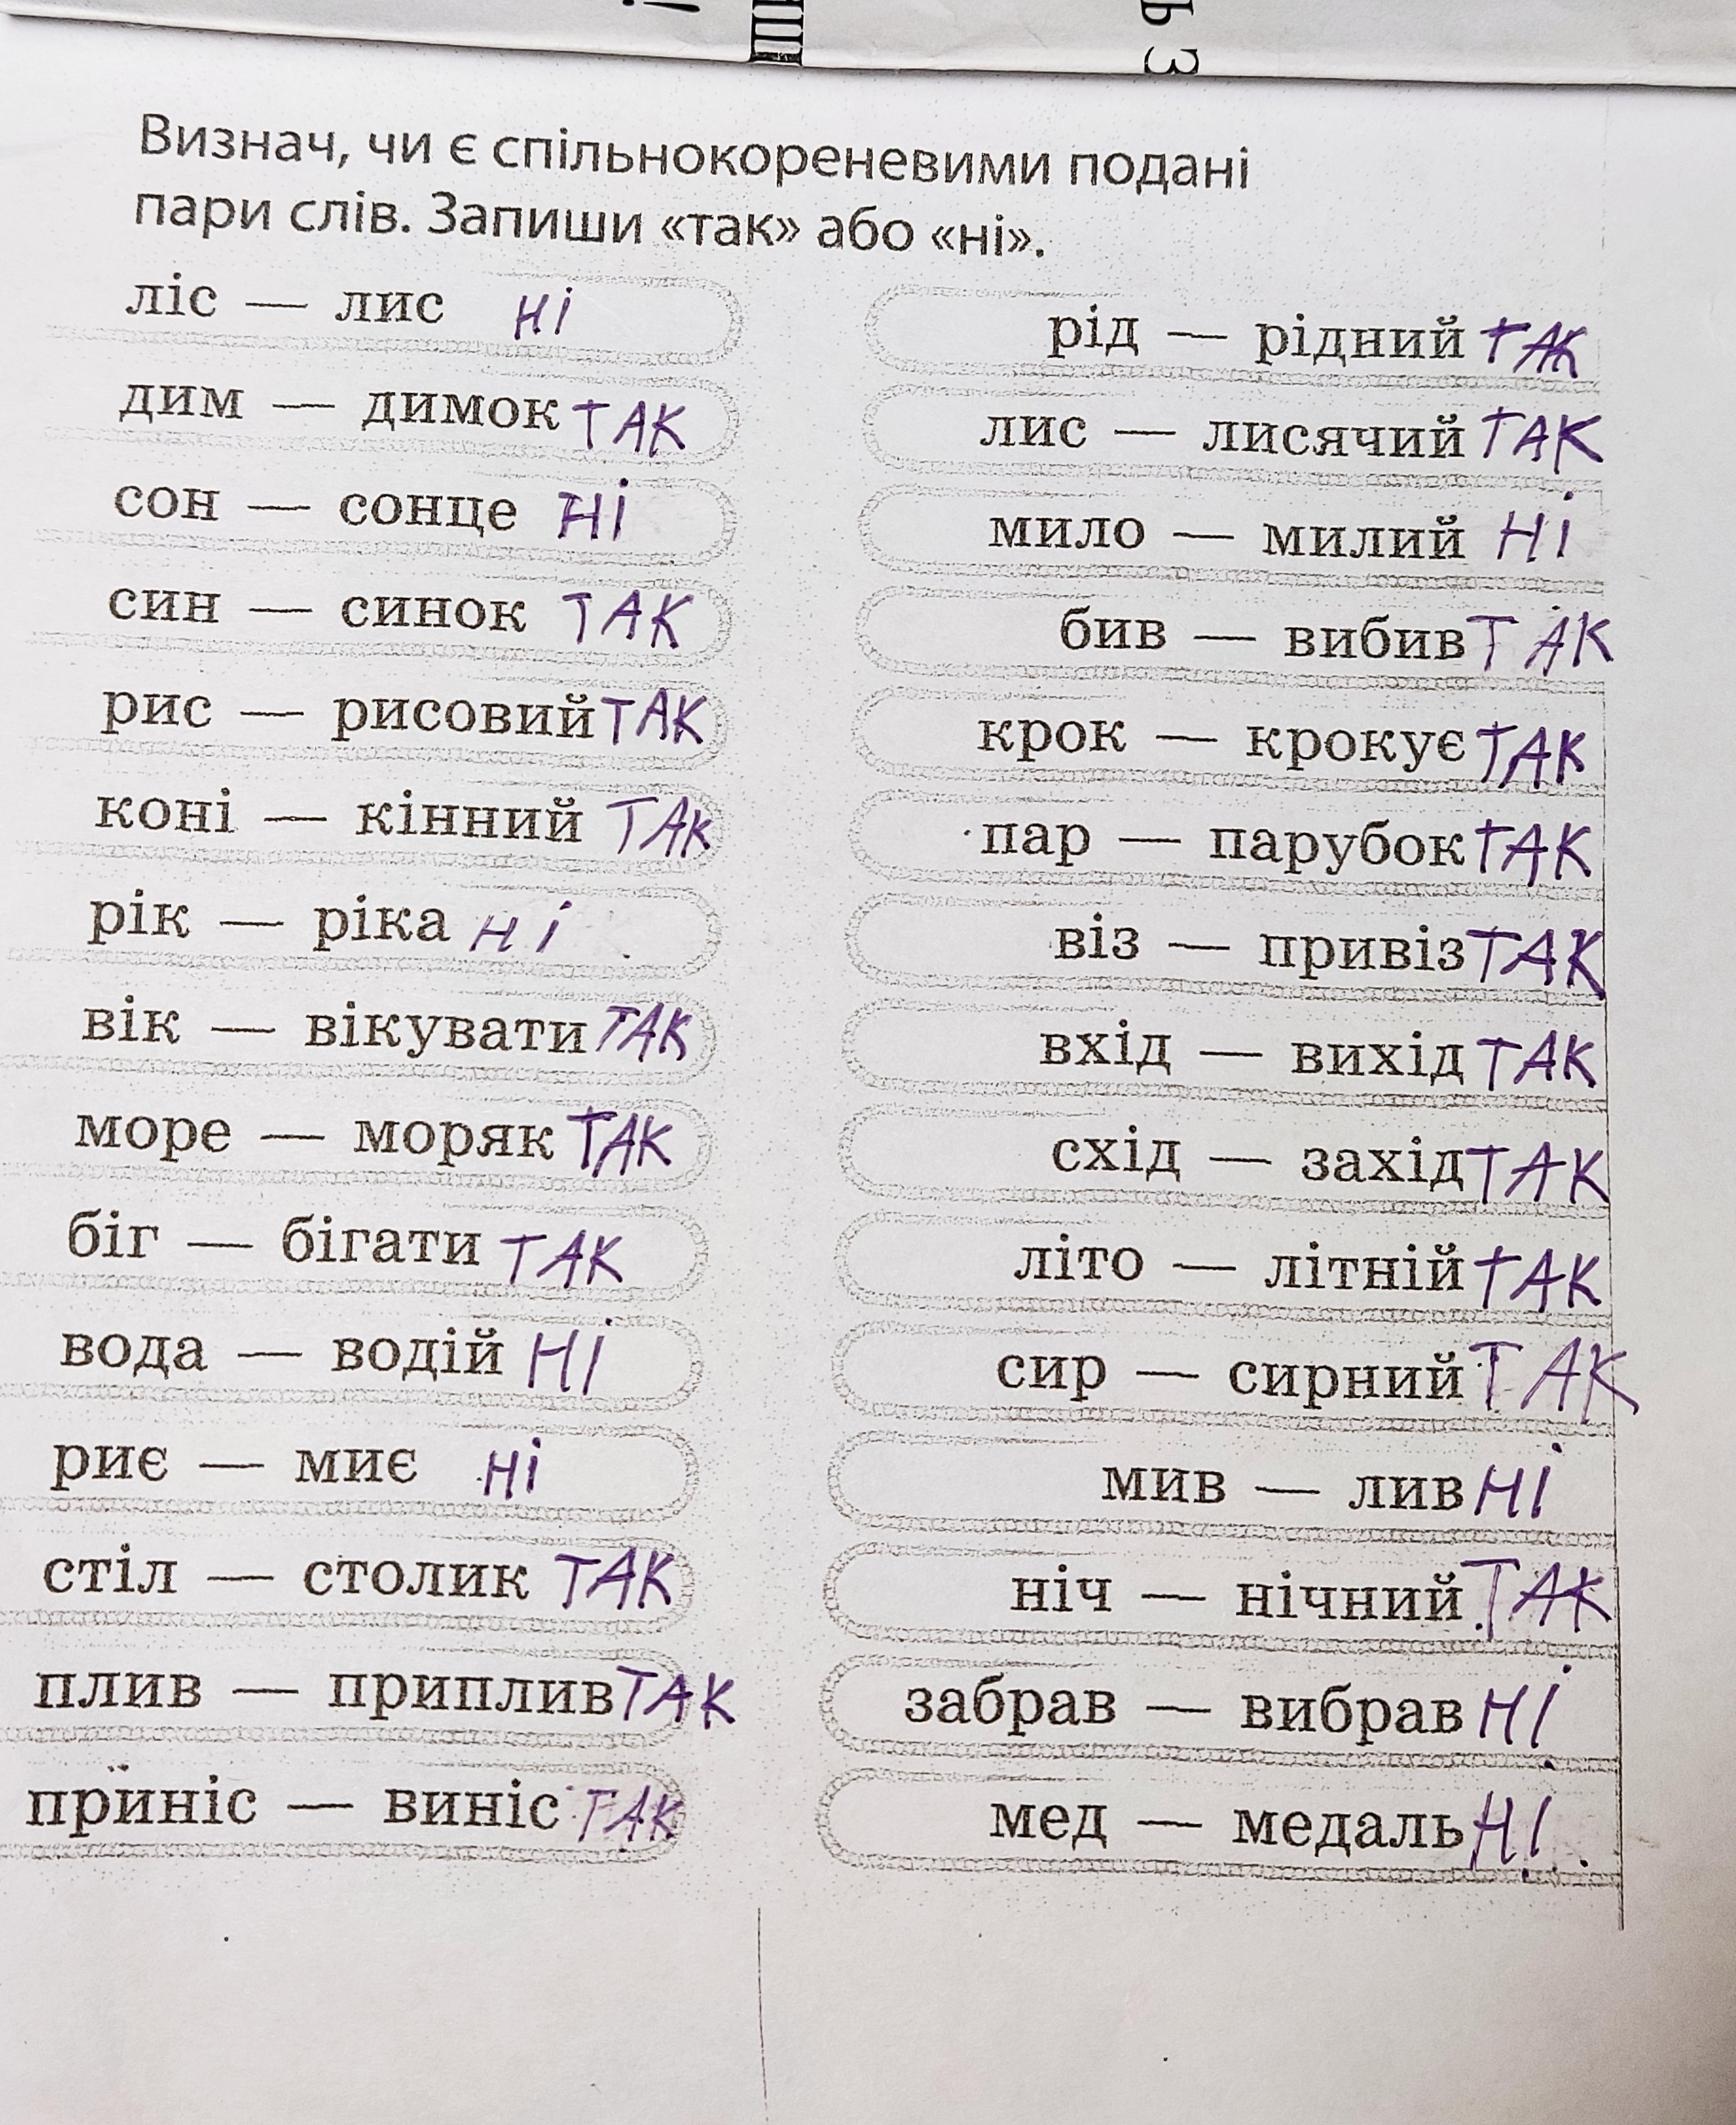 Визнач, чи є спільнокореневими подані
пари слів. Запиши «так» або «ні».
ліс — лис ні
дим — димок ТАК
сон — сонце НІ
син — синок ТАК
рис — рисовий ТАК
коні — кінний ТАК
рік — ріка НІ
вік — вікувати ТАК
море — моряк ТАК
біг — бігати ТАК
вода — водій НІ
риє — миє НІ
стіл — столик ТАК
плив — приплив ТАК
приніс — виніс ТАК
рід — рідний ТАК
лис — лисячий ТАК
мило — милий НІ
бив — вибив ТАК
крок — крокує ТАК
пар — парубок ТАК
віз — привіз ТАК
вхід — вихід ТАК
схід — захід ТАК
літо — літній ТАК
сир — сирний ТАК
мив — лив НІ
ніч — нічний ТАК
забрав — вибрав НІ
мед — медаль НІ